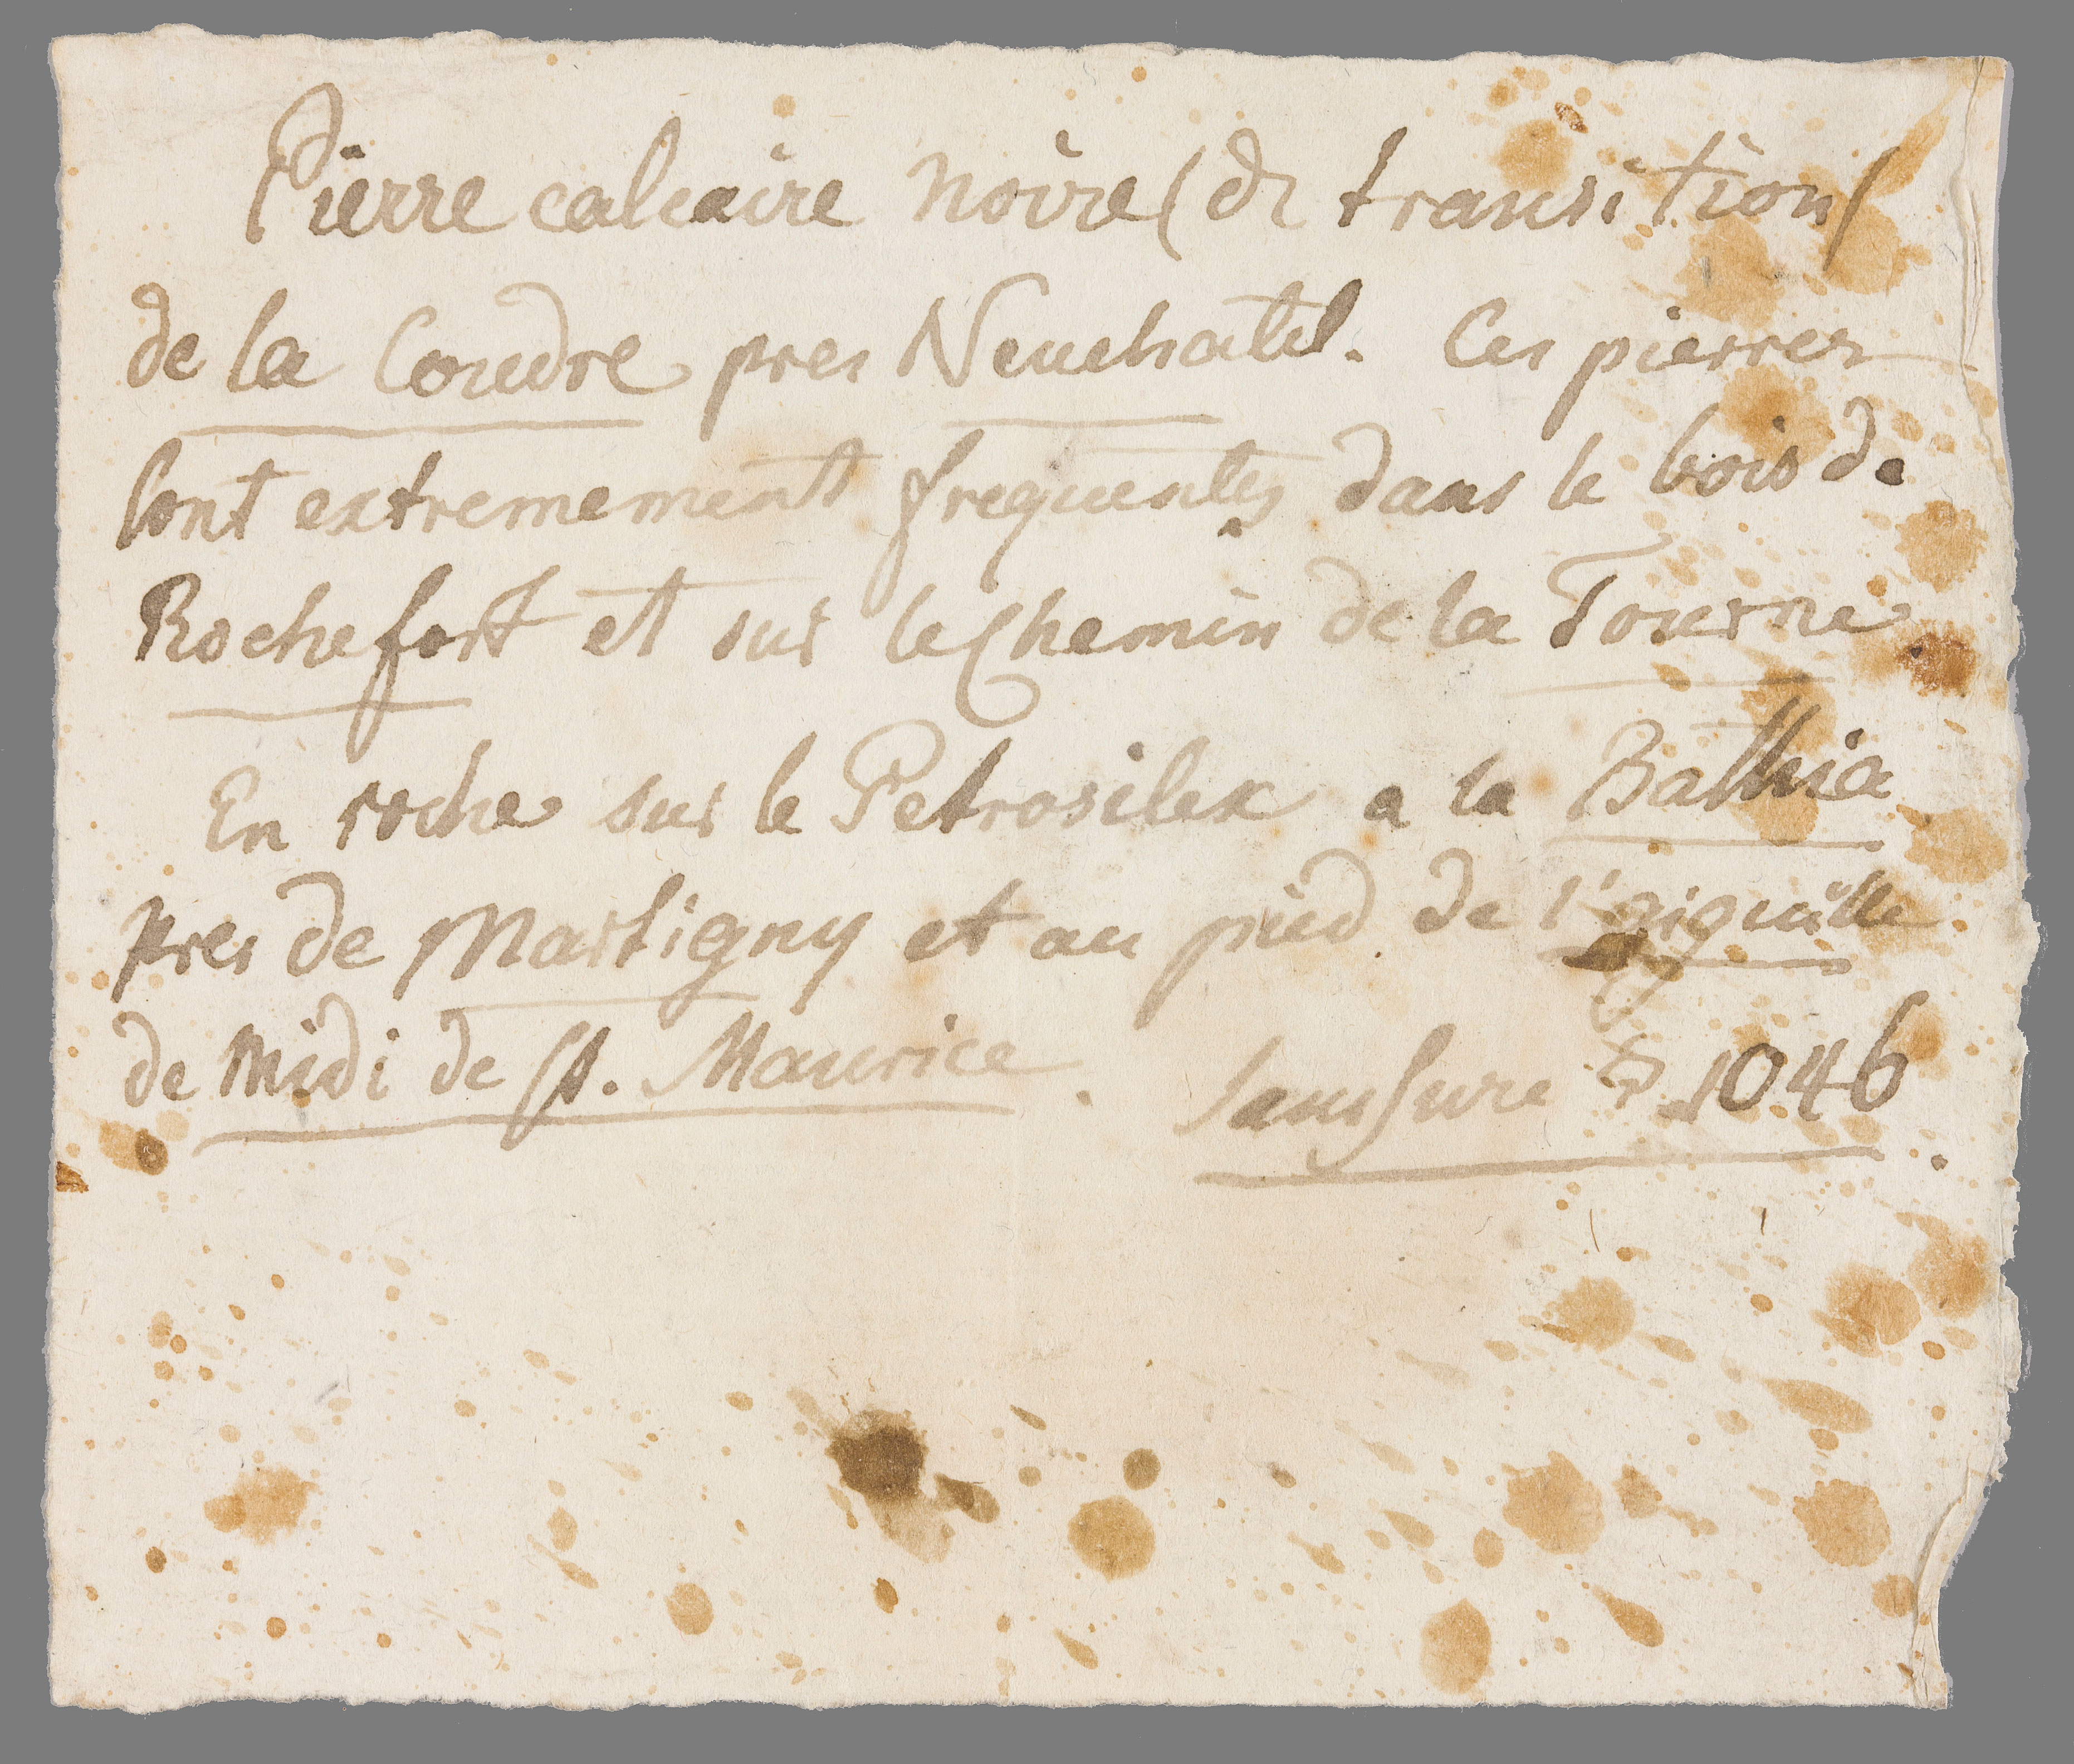 Pierre calcaire noire (de transition(
de la Coudre pres Neuchatel. Ces pierres
sont extremement frequentes dans le bois de
Rochefort et sur le Chemin de la Tourne
En roche sur le Petrosilex a la Bathia
pres de Martigny et au pied de l'aiguille
de Midi de St. Maurice. Saussure § 1046.